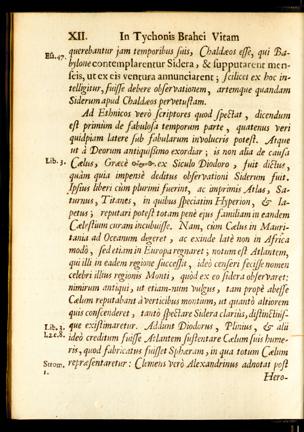 XII. In Tychonis Brahei Vitam
querebantur jam temporibus suis, Chaldæos esse, qui Ba-
Esa. 47. bylone contemplarentur Sidera, & supputarent men-
seis, ut ex eis ventura annunciarent; scilicet ex hoc in-
telligitur, fuisse debere observationem, artemque quandam
Siderum apud Chaldæos pervetustam.
Ad Ethnicos verò scriptores quod spectat, dicendum
est primùm de fabulosa temporum parte, quatenus veri
quidpiam latere sub fabularum involucris potest. Atque
ut à Deorum antiquissimo exordiar; is non alia de causa
Lib. 3. Cælus, Græcè ex Siculo Diodoro, fuit dictus,
quàm quia impensè deditus observationi Siderum fuit.
Ipsius liberi cùm plurimi fuerint, ac imprimis Atlas, Sa-
turnus, Titanes, in quibus speciatim Hyperion, & Ia-
petus; reputari potest totam penè ejus familiam in eandem
Cælestium curam incubuisse. Nam, cùm Cælus in Mauri-
tania ad Oceanum degeret, ac exinde latè non in Africa
modò, sed etiam in Europa regnaret; notum est Atlantem,
qui illi in eadem regione successit, ideò censeri fecisse nomen
celebri illius regionis Monti, quòd ex eo sidera observaret:
nimirum antiqui, ut etiam-num vulgus, tam propè abesse
Cælum reputabant à verticibus montium, ut quantò altiorem
quis conscenderet, tantò spectare Sidera clariùs, distinctiús-
Lib. 3. que existimaretur. Addunt Diodorus, Plinius, & alii
L.2.c.8. ideò creditum fuisse Atlantem sustentare Cælum suis hume-
ris, quod fabricatus fuisset Sphæram, in qua totum Cælum
Strom. repræsentaretur: Clemens verò Alexandrinus adnotat post
1. Hero-